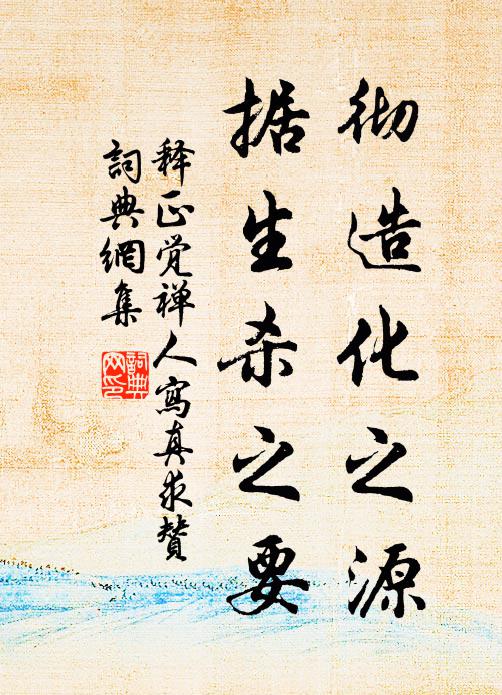 彻造化之源
据生杀之要
释正觉禅人寫真求贊
詞典網集
詞典
网印